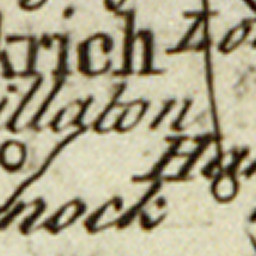 krich Lo
illaton
Ha
nock